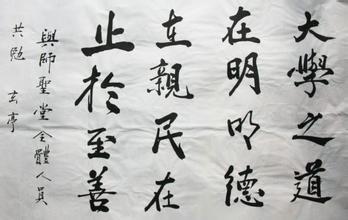 大學之道
在明明德
在親民在
止於至善
與師聖堂全體人員
共勉 玄亭